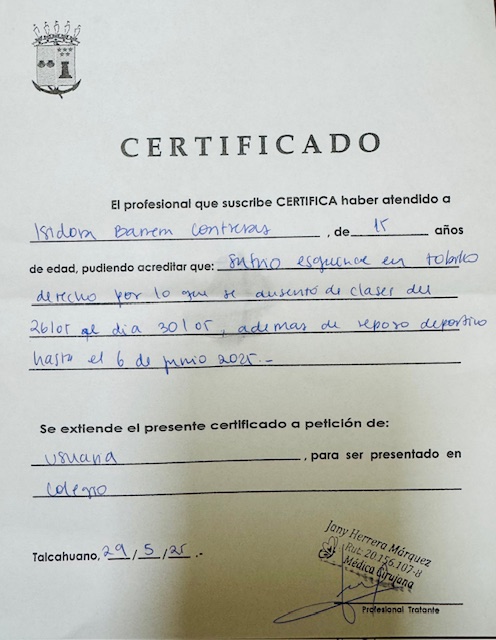 CERTIFICADO
El profesional que suscribe CERTIFICA haber atendido a
Isidora Barrera Contreras, de 15 años
de edad, pudiendo acreditar que: Sufrió esguince en tobillo
derecho por lo que se ausentó de clases del
26/05 al dia 30/05, ademas de reposo deportivo
hasta el 6 de junio 2025.-
Se extiende el presente certificado a petición de:
usuaria, para ser presentado en
Colegio
Talcahuano, 29/5/25.-
Jany Herrera Márquez
Rut: 20.156.107-8
Médica Cirujana
Profesional Tratante